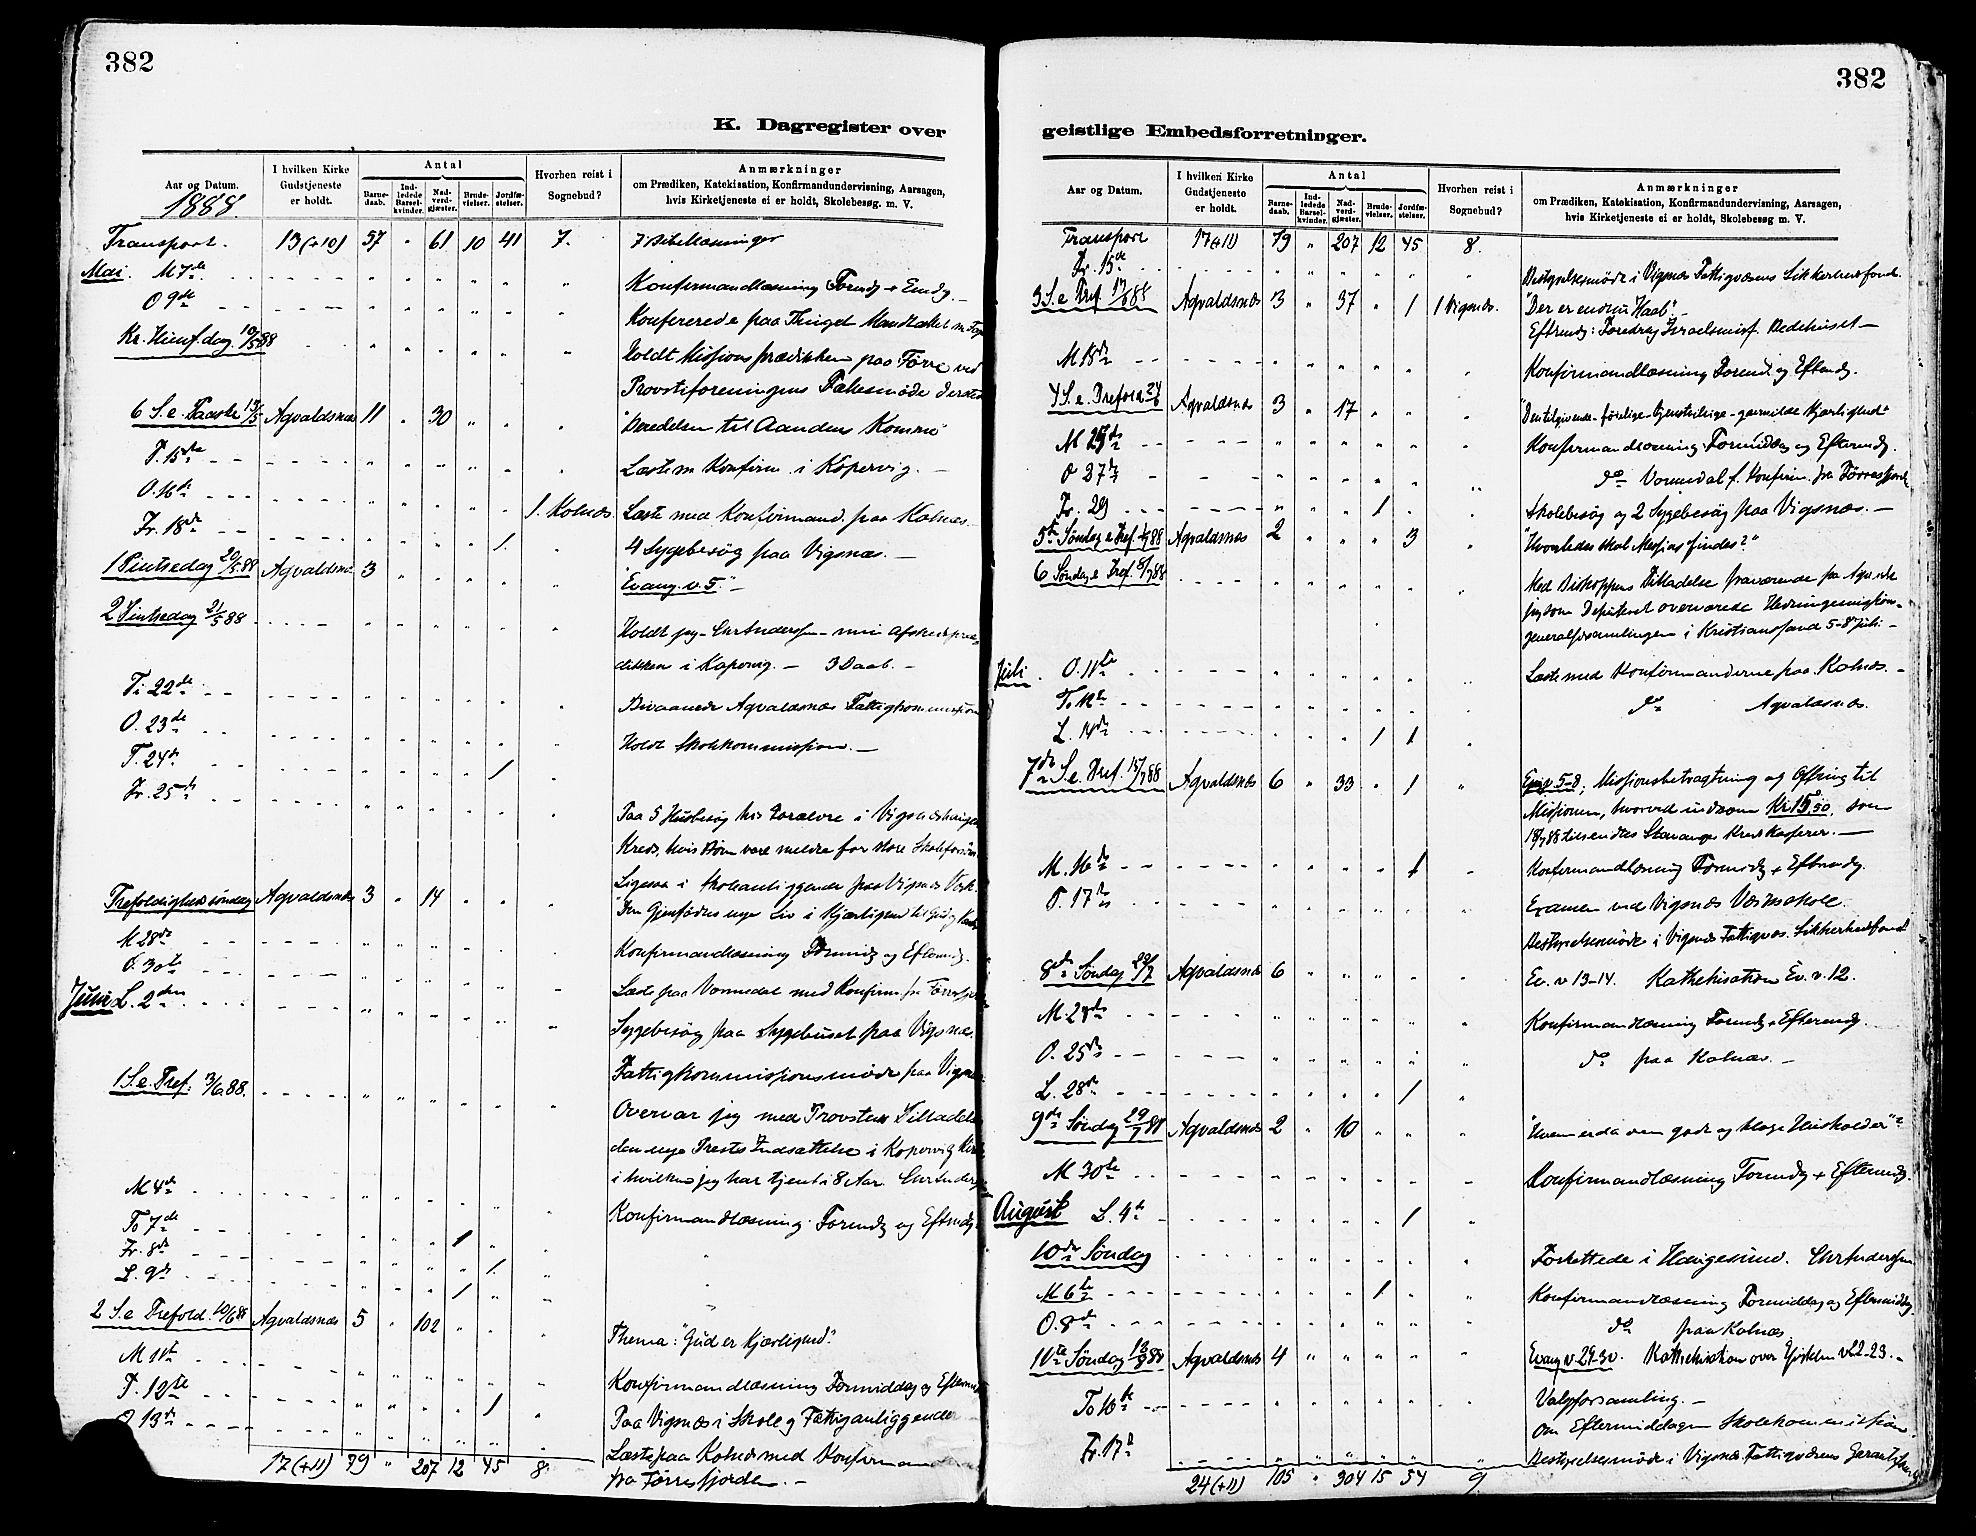 382
K. Dagregister over
Aar og Datum.
1888
I hvilken Kirke Gudstjeneste er holdt.
Antal
Barne-daab.
Ind-ledede Barsel-kvinder.
Nad-verd-gjæster.
Brude-vielser.
Jordfæ-stelser.
Hvorhen reist i Sognebud?
Anmærkninger
om Prædiken, Katekisation, Konfirmandundervisning, Aarsagen,
hvis Kirketjeneste ei er holdt, Skolebesøg. m. V.
Transport. 13 (+10) 57 " 61 10 41 7. 7 Bibellæsninger
Mai. M 7de Konfirmandlæsning Formdg + Emdg. —
O 9de Konfererede paa Thinget
Kr. Himf. dag 10/5 88 Holdt Missionsprædikken paa Førre ved
Provstiforeningens Fællesmøde
6 S. e. Paaske 13/5 Agvaldsnæs 11 " 30 " " "Veredelsen til Aandens Komme"
T. 15de Læste m Konfirm. i Kopervig. —
O. 16de 1. Kolnæs. Læste med Konfirmand. paa Kolnæs.
Fr. 18de 1. 4 Sygebesøg paa Vigsnæs. —
1 Pintsedag 20/5 88 Agvaldsnæs 3 Evang. v. 5." —
2 Pintsedag 21/5 88 Holdt jeg — Chr Andersen — min Afskedspræ-
dikken i Kopervig. — 3 Daab. —
Ti 22de Bivaanede Agvaldsnæs Fattigkommission
O. 23de Holdt Skolekommission. —
T. 24de 1
Fr. 25de Paa 5 Husbesøg hos Forældre i
Kreds, hvis Børn vare meldte for store Skoleforsøm
Ligesaa i Skoleanliggende paa Vigsnæs Værk.
Trefoldigheds søndag Agvaldsnæs 3 " 14 " " "Den Gjenfødtes nye Liv i Kjærlighed til Gud
M 28de Konfirmandlæsning Formidg og Eftermidg.
O. 30te Læste paa Vormedal med Konfirm. fra Førresfjorden
Juni L. 2den Sygebesøg paa Sygehuset paa Vigsnæs.
Fattigkommissionsmøde paa Vigsnæs
1 S. e. Tref: 3/6 88. Overvar jeg med Provstens Tilladelse
den nye Prests Indsættelse i Kopervig Kirke
i hvilken jeg har tjent i 8 Aar. Chr Andersen
M 4de Konfirmandlæsning. Formdg og Eftmdg.
To 7de 1 "
Fr. 8de 1.
L. 9de 1 "
2 S. e Trefold. 10/6 88 Agvaldsnæs 5 " 102 Thema: "Gud er Kjærlighed."
M 11te Konfirmandlæsning Formiddag og Eftermd
T. 12te 1 Paa Vigsnæs i Skole og Fattiganliggender
O 13de Læste paa Kolnæs med Konfirmanderne
fra Førresfjorden. —
17 (+11) 79 " 207 12 45 8
382
geistlige Embedsforretninger.
Aar og Datum.
I hvilken Kirke Gudstjeneste er holdt.
Antal
Barne-daab.
Ind-ledede Barsel-kvinder.
Nad-verd-gjæster.
Brude-vielser.
Jordfæ-stelser.
Hvorhen reist i Sognebud?
Anmærkninger
om Prædiken, Katekisation, Konfirmandundervisning, Aarsagen,
hvis Kirketjeneste ei er holdt, Skolebesøg. m. V.
Transport 17 (+11) 79 " 207 12 45 8.
Fr. 15de Bestyrelsesmøde i Vigsnæs Fattigvæsens Sikkerhedsfond.
3 S. e Tref. 17/6 88 Agvaldsnæs 3 " 37 " 1 1 Vigsnæs. "Der er endnu Haab". —
Eftmdg: Foredrag Israelsmiss. Bedehuset —
M 18de Konfirmandlæsning Formd. og Eftmdg.
4 S. e. Trefold 24/6 Agvaldsnæs 3 " 17 Kjærlighed"
M 25de Konfirmandlæsning. Formiddg og Eftermdg.
O 27de do Vormedal f. Konfirm. fra Førresfjord
Fr. 29 1 Skolebesøg og 2 Sygebesøg paa Vigsnæs. —
5te Søndag e Tref 1/7 88 Agvaldsnæs 2 3 "Hvorledes skal Messias findes?"
6 Søndag e Tref. 8/7 88 Med Biskoppens Tilladelse fraværende fra Agvaldsn
jeg som Deputeret overværede Hedningemission-
generalforsamlingen i Kristianssand 5-8 Juli. —
Juli. O. 11te Læste med Konfirmanderne paa Kolnæs. —
To. 12te do Agvaldsnæs.
L. 14de 1 1
7de S. e. Tref. 15/7 88 Agvaldsnæs 6 " 33 " 1 Evg v 5-8. Missionsbetragtning og Offring til
Missionen, hvorved indkom Kr 15,50, som
18/7 88 tilsendtes Stavanger Kredskasserer. —
M. 16de 1 Konfirmandlæsning Formidg + Eftermdg.
T. 17de Examen ved Vigsnæs Værksskole.
Bestyrelsesmøde i Vigsnæs Fattigvæs. Sikkerhedsfond
8de Søndag 22/7 Agvaldsnæs 6 Ev. v 13-14. Kathekisation Ev. v. 12.
M. 23de Konfirmandlæsning Formdg + Eftermdg.
O. 25de do paa Kolnæs. —
L. 28de 1
9de Søndag 29/7 88 Agvaldsnæs 2 " 10 "Hvem er da den gode og kloge Husholder"?
M 30te Konfirmandlæsning Formdg + Eftermdg.
August L. 4de 1
10de Søndag Forrettede i Haugesund. Chr Andersen
M 6te 1 Konfirmandlæsning Formiddag og Eftermiddg.
O. 8de do paa Kolnæs
11te Søndag 12/8 88 Agvaldsnæs 4 Evang v 29-30. Kathekisation over Epistlen v 22-23. —
To 16de Valgforsamling. —
Om Eftermiddagen Skolekommission
Fr. 17de Bestyrelsesmøde i Vigsnæs Fattigvæsens
24 (+11) 105 " 304 15 54 9